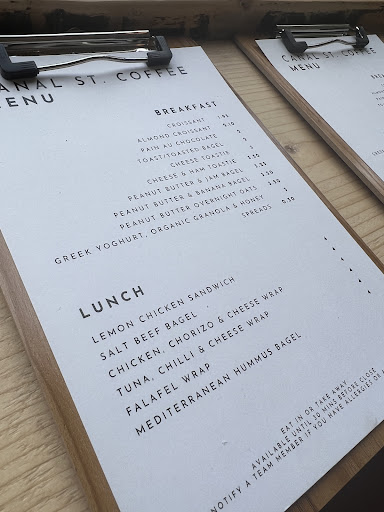 CANAL ST. COFFEE
MENU
BREAKFAST
CROISSANT
ALMOND CROISSANT
PAIN AU CHOCOLATE
TOAST/TOASTED BAGEL
CHEESE TOASTIE
CHEESE & HAM TOASTIE
PEANUT BUTTER & JAM BAGEL
PEANUT BUTTER & BANANA BAGEL
PEANUT BUTTER OVERNIGHT OATS
GREEK YOGHURT, ORGANIC GRANOLA & HONEY
SPREADS
LUNCH
LEMON CHICKEN SANDWICH
SALT BEEF BAGEL
CHICKEN, CHORIZO & CHEESE WRAP
TUNA, CHILLI & CHEESE WRAP
FALAFEL WRAP
MEDITERRANEAN HUMMUS BAGEL
EAT IN OR TAKE AWAY
AVAILABLE UNTIL 30 MINS BEFORE CLOSE
NOTIFY A TEAM MEMBER IF YOU HAVE ALLERGIES OR
CANAL ST. COFFEE
MENU